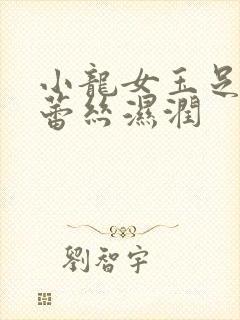 小龍女玉足
蕾絲濕潤
劉智宇